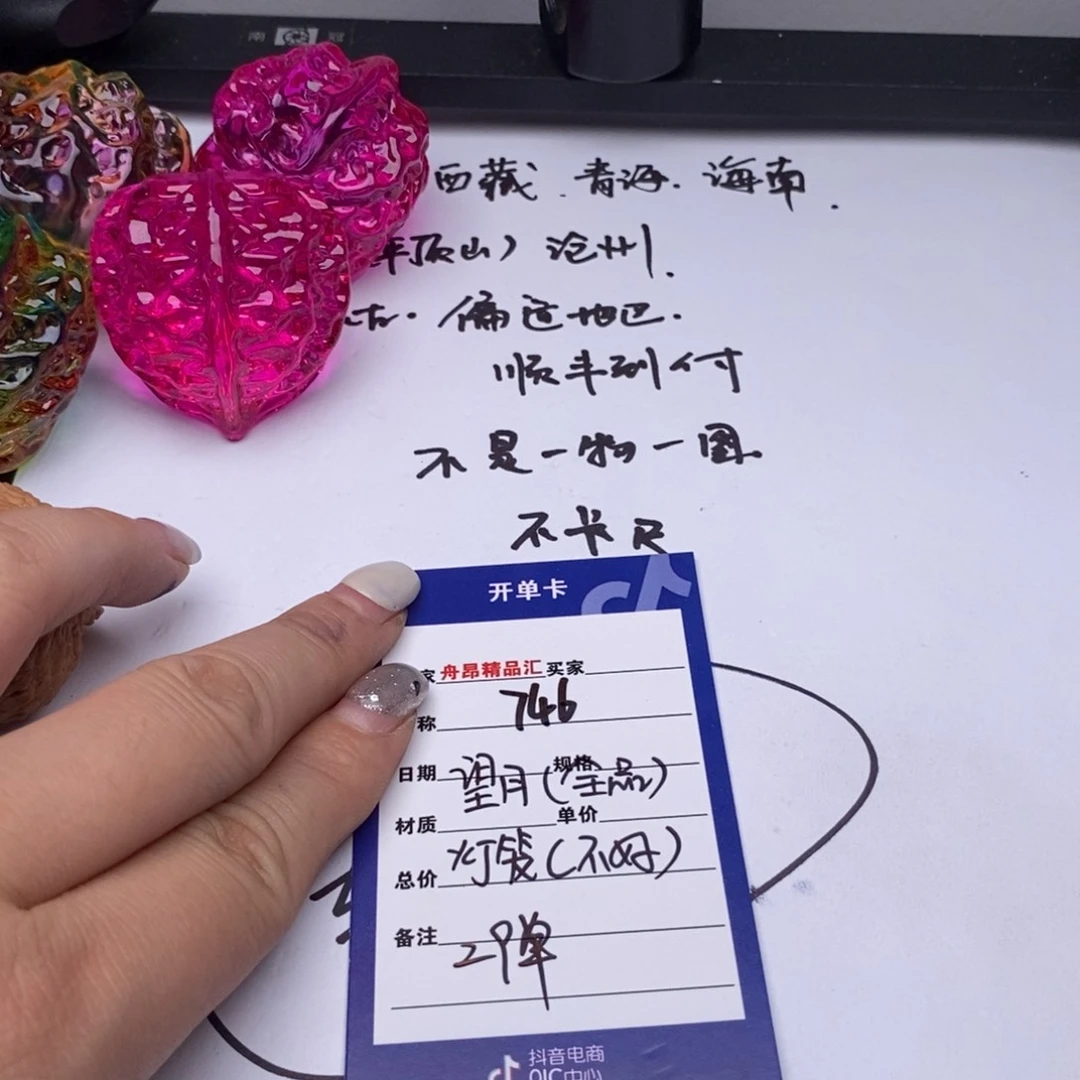 南 冠
西藏、青海、海南.
平顶山）沧州.
古. 偏远地区.
顺丰到付
不是一物一图.
不卡尺
开单卡
家 舟昂精品汇 买家
称 746
日期 规格
望月（全品）
材质 单价
总价 灯镜（不好）
备注 二弹
抖音电商
QIC中心